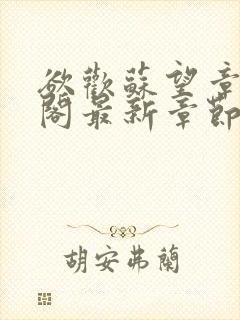 欲歡蘇望章
閣最新章節
胡安弗蘭